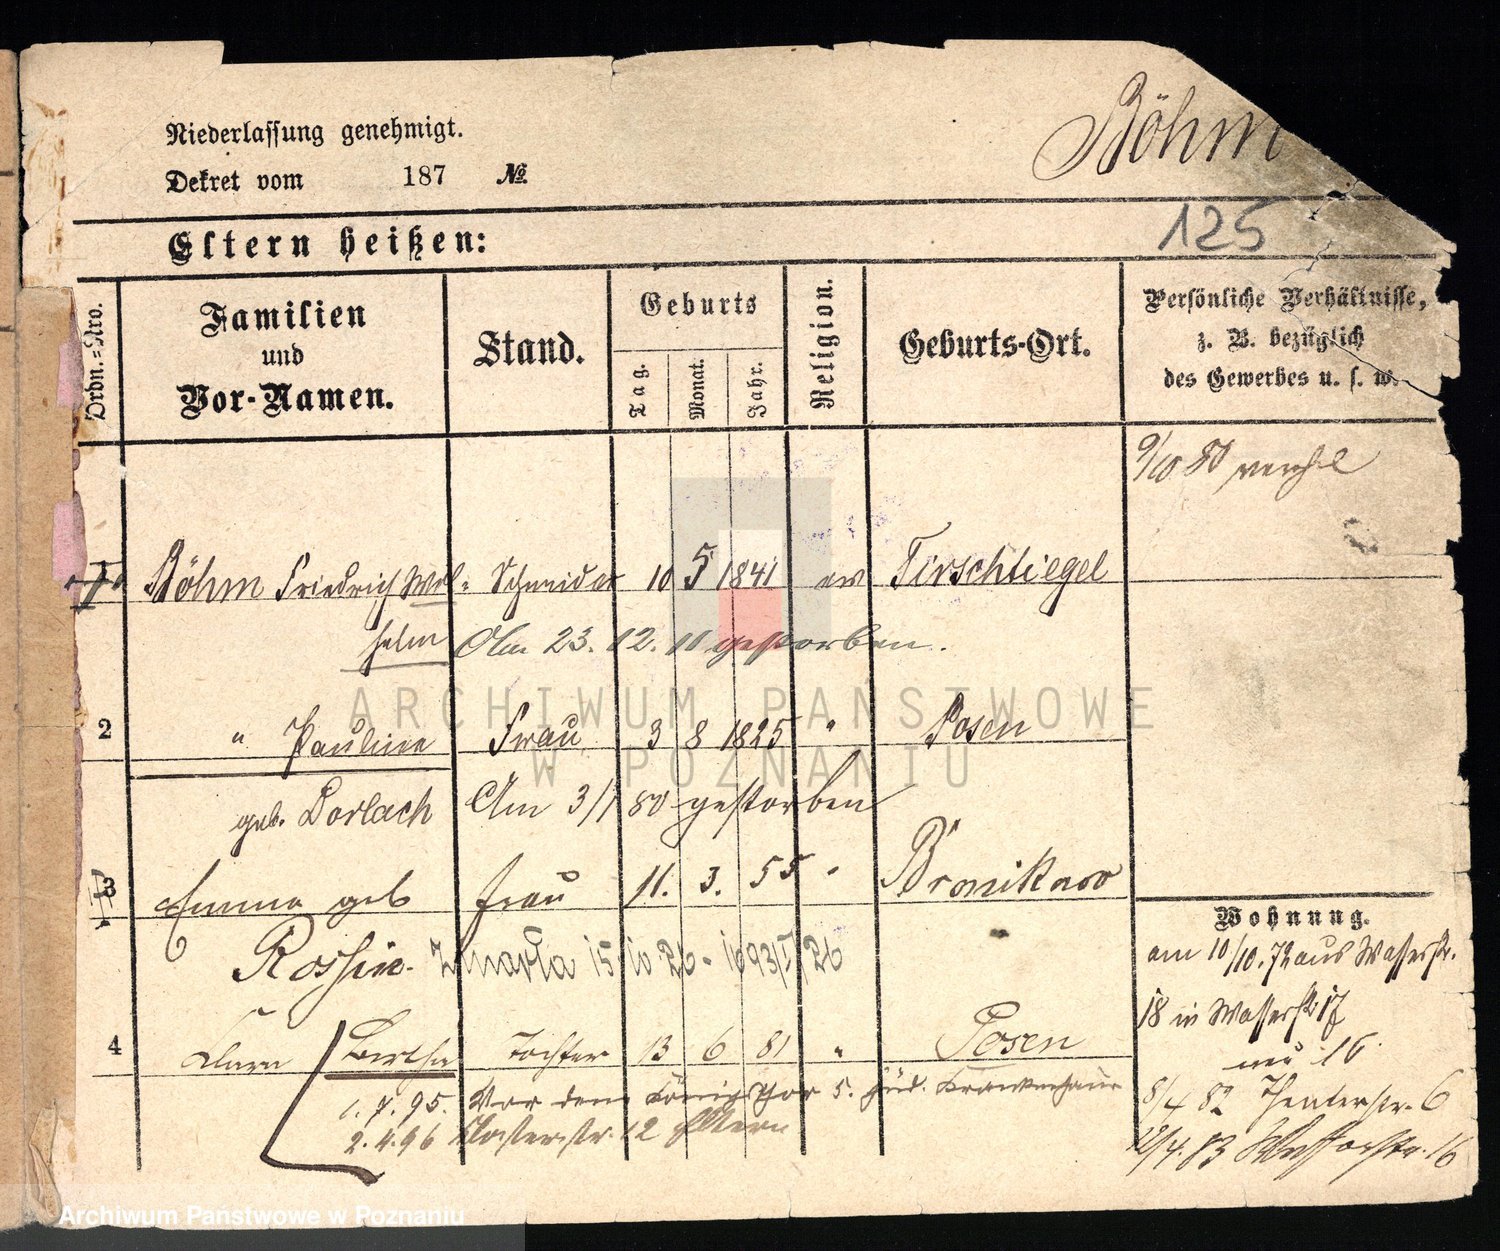 Böhm
Niederlassung genehmigt.
Dekret vom 187 №.
125
Eltern heißen:
Ordn.=Nro.
Familien
und
Vor-Namen.
Stand.
Geburts
Tag.
Monat.
Jahr.
Religion.
Geburts-Ort.
Persönliche Verhältnisse,
z. B. bezüglich
des Gewerbes u. s. w.
9/10 80
1 Böhm Friedrich Wil= Schneider 10 5 1841 ev Tirschtiegel
helm Am 23. 12. 11 gestorben.
2 " Pauline Frau 3 8 1825 " Posen
geb. Dorlach Am 3/1 80 gestorben
3 Emma geb Frau 11. 3. 55 " Bronikowo
Rossin. Zmarła 15 10 26 - 1693/I/26
4 Clara Bertha Tochter 13 6 81 " Posen
1. 7. 95. Vor dem Königsthor 5. jüd. Krankenhause
2. 4. 96 Klosterstr. 12 Eltern
Wohnung.
am 10/10. 72 aus Wasserstr.
18 in Wasserstr 17
neu 16
8/4 82 Theaterstr. 6
12/4. 83 16
ARCHIWUM PAŃSTWOWE
W POZNANIU
Archiwum Państwowe w Poznaniu